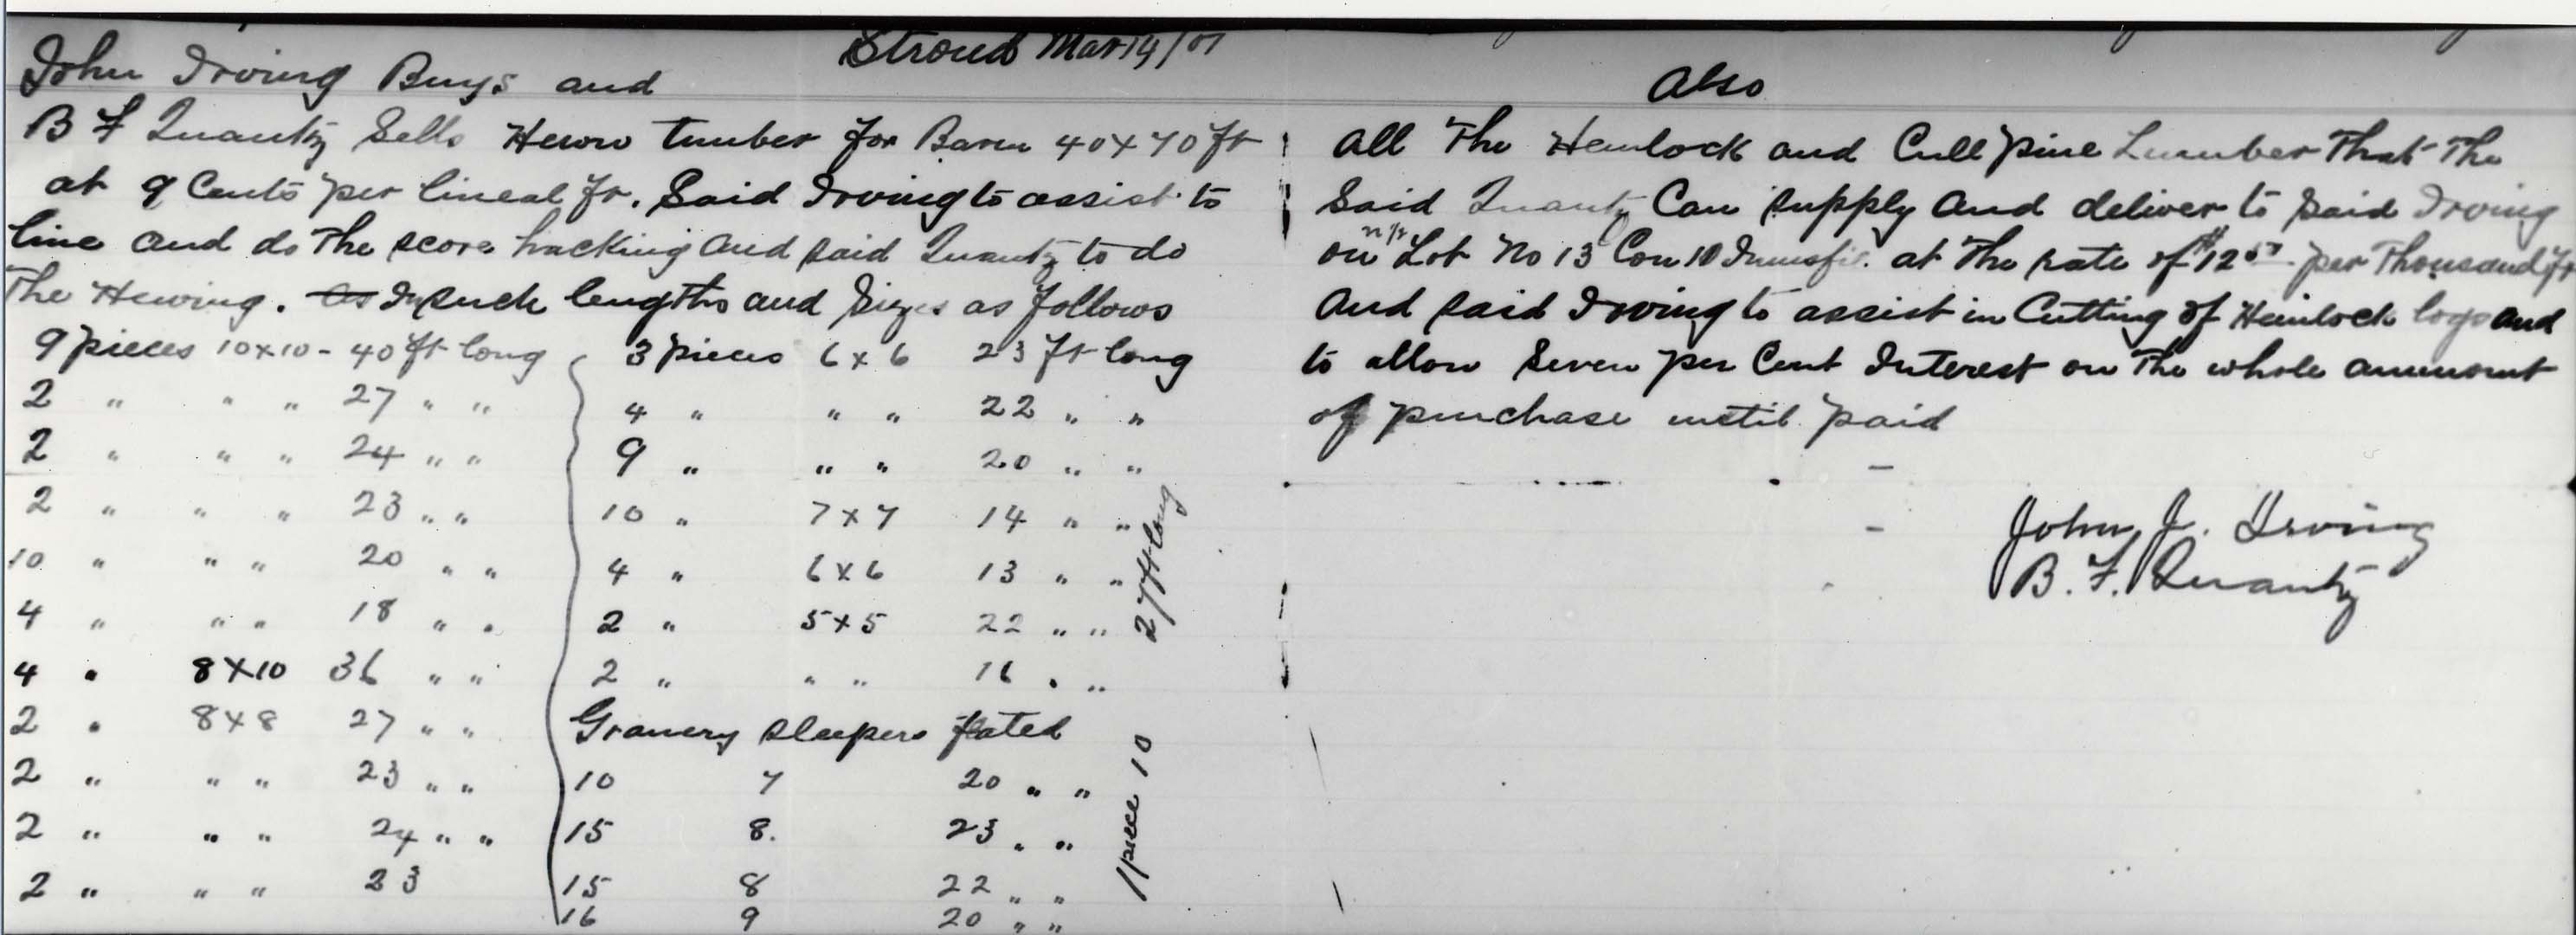 Stroud Mar 14/01
John Irving Buys and
B F Quantz Sells Hewn Timber for Baren 40x70 ft
at 9 Cents per lineal ft. Said Irving to assist to
line and do The score hacking and said Quantz to do
The Hewing. as In such lengths and Sizes as follows
9 pieces 10x10 - 40 ft long
2 " " " 27 " "
2 " " " 24 " "
2 " " " 23 " "
10 " " " 20 " "
4 " " " 18 " "
4 " 8x10 36 " "
2 " 8x8 27 " "
2 " " " 23 " "
2 " " " 24 " "
2 " " " 23
3 pieces 6x6 23 ft long
4 " " " 22 " "
9 " " " 20 " "
10 " 7x7 14 " "
4 " 6x6 13 " "
2 " 5x5 22 " "
2 " " " 16 " "
Granery sleepers flated
10 7 20 " "
15 8. 23 " "
15 8 22 " "
16 9 20 " "
1 piece 10 27 ft long
Also
All The Hemlock and Cull pine Lumber That The
Said Quantz Can supply And deliver to said Irving
on n/½ Lot No 13 Con 10 Innisfil. at The rate of $12 50 per Thousand ft
And said Irving to assist in Cutting of Hemlock logs and
to allow Seven per Cent Interest on The whole ammount
of purchase until paid
John J. Irving
B. F. Quantz